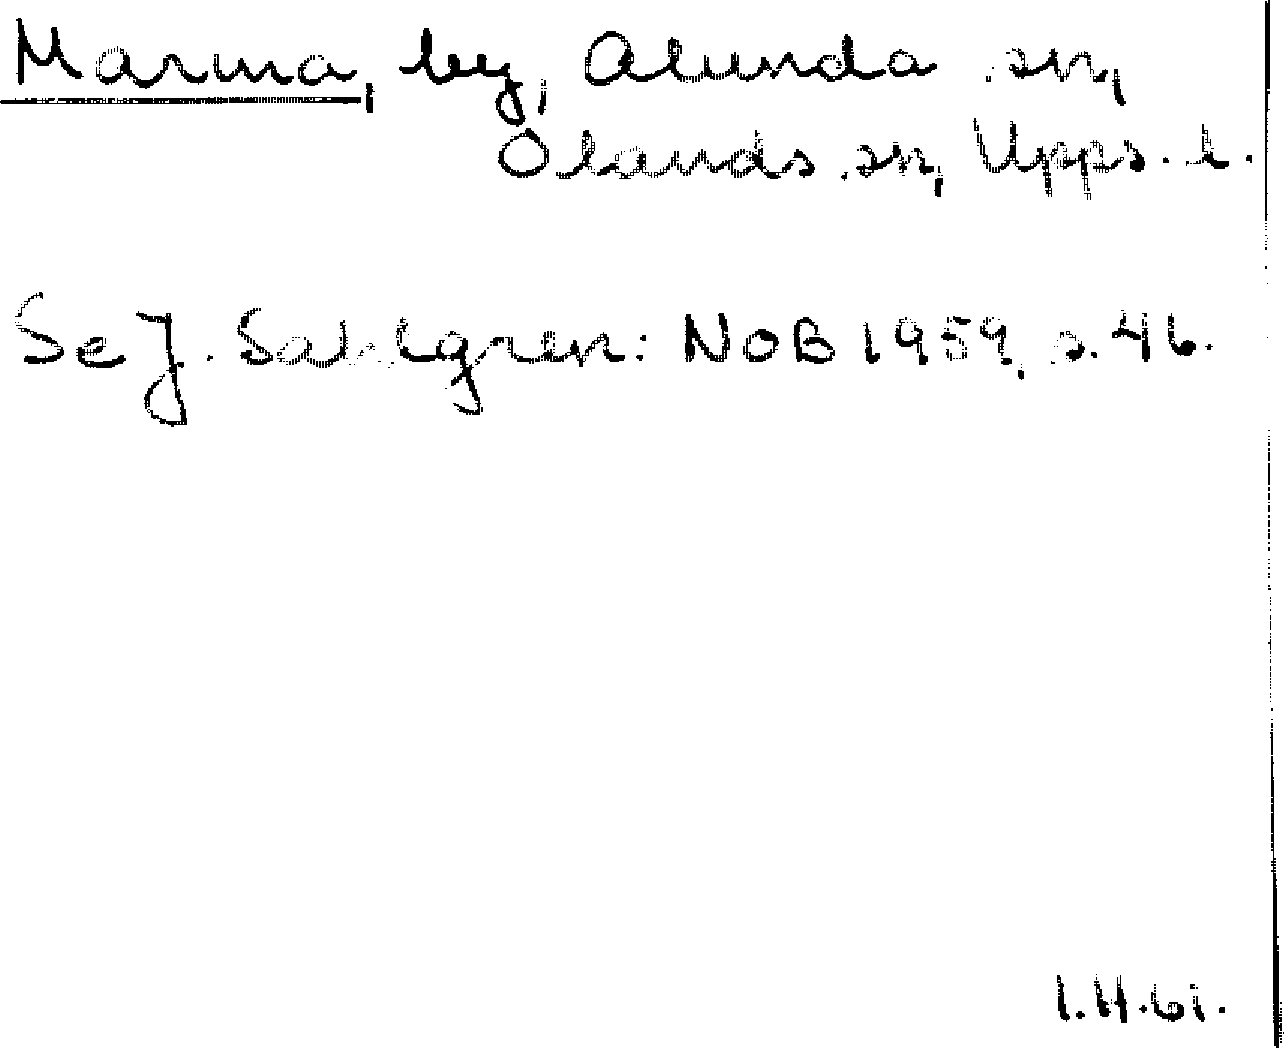 Marma, by, Alunda sn,
Olands sn, Upps. l.
Se J. Sahlgren: NoB 1959, s. 46.
I.H.61.